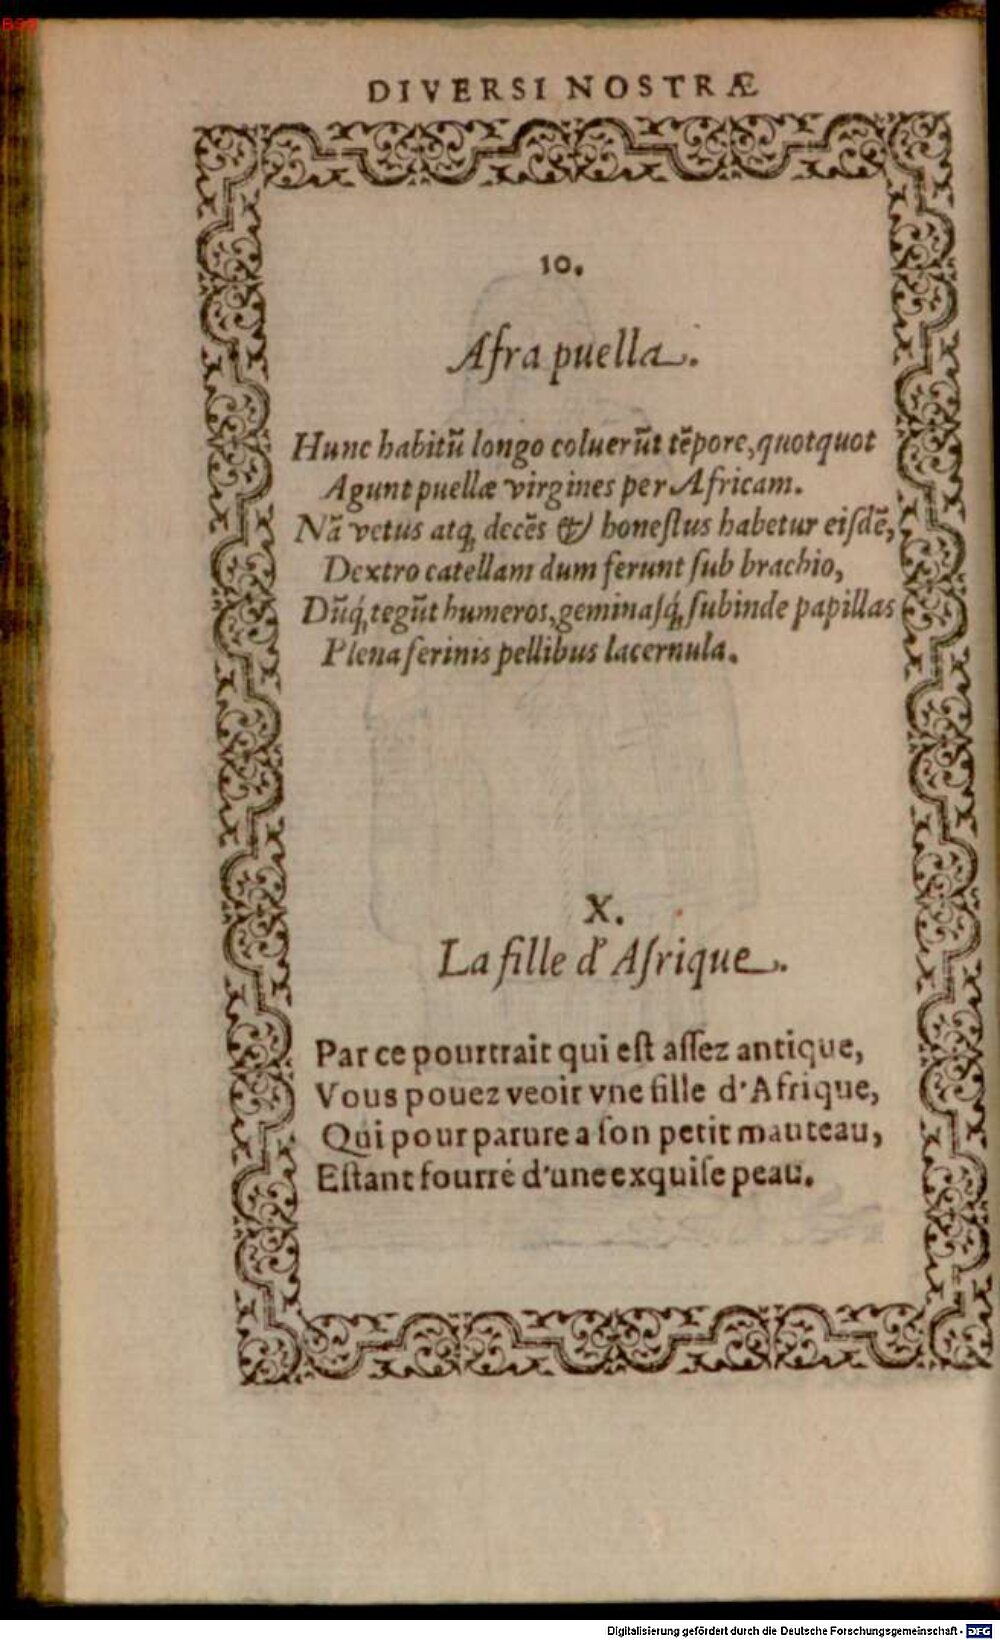 BSB
DIVERSI NOSTRÆ
10.
Afra puella.
Hunc habitũ longo coluerũt tẽpore, quotquot
Agunt puellæ virgines per Africam.
Nã vetus atq; decẽs & honeſtus habetur eiſdẽ,
Dextro catellam dum ferunt ſub brachio,
Dũq́; tegũt humeros, geminaſq́; ſubinde papillas
Plena ferinis pellibus lacernula.
X.
La fille d'Afrique.
Par ce pourtrait qui eſt aſſez antique,
Vous pouez veoir vne fille d'Afrique,
Qui pour parure a ſon petit manteau,
Eſtant fourré d'une exquiſe peau.
Digitalisierung gefördert durch die Deutsche Forschungsgemeinschaft - DFG